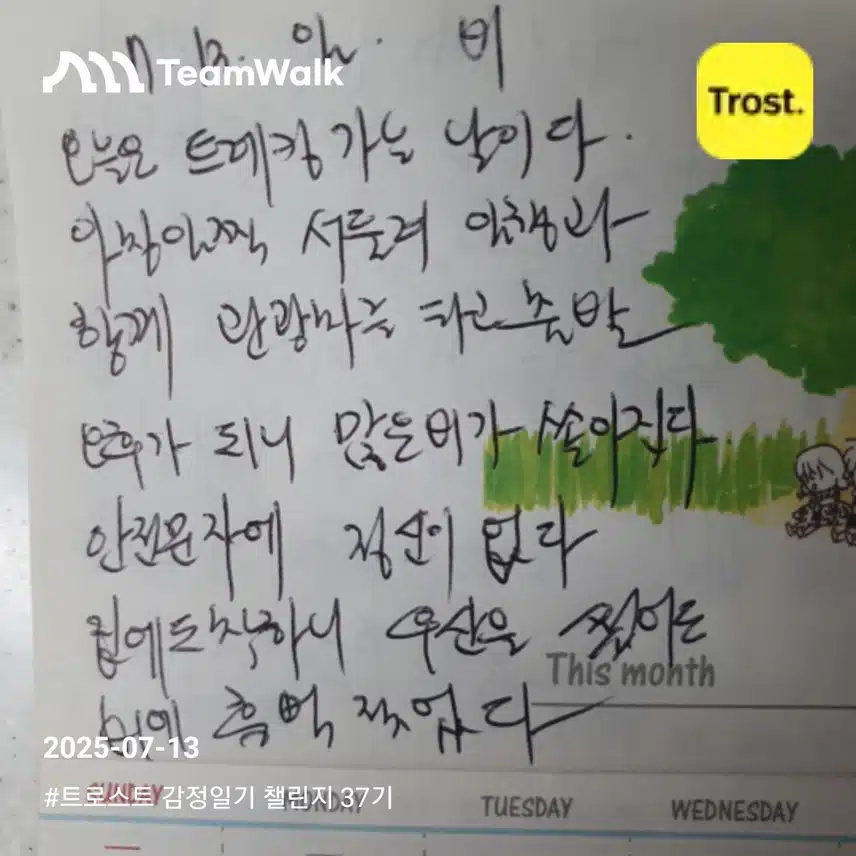 7. 13. 일. 비
TeamWalk
Trost.
오늘은 트레킹 가는 날이다.
아침일찍 서둘러 일행과
함께 관광버스를 타고 출발
오후가 되니 많은비가 쏟아진다
안전문자에 정신이 없다
집에도착하니 우산을 썼어도
This month
흠뻑 젖었다
2025-07-13
#트로스트 감정일기 챌린지 37기
SUNDAY
MONDAY
TUESDAY
WEDNESDAY